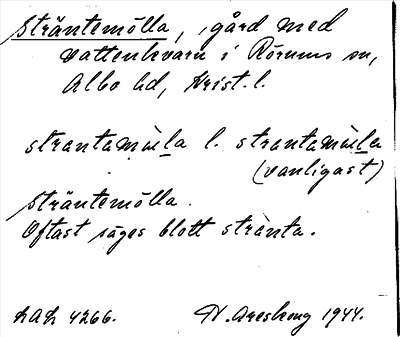 Sträntemölla, gård med
vattenkvarn i Rörums sn,
Albo hd, Krist. l.
strantamúla l. strantamùla
(vanligast)
Sträntemölla.
Oftast säges blott strànta.
LAL 4266. N. Areskoug 1944.